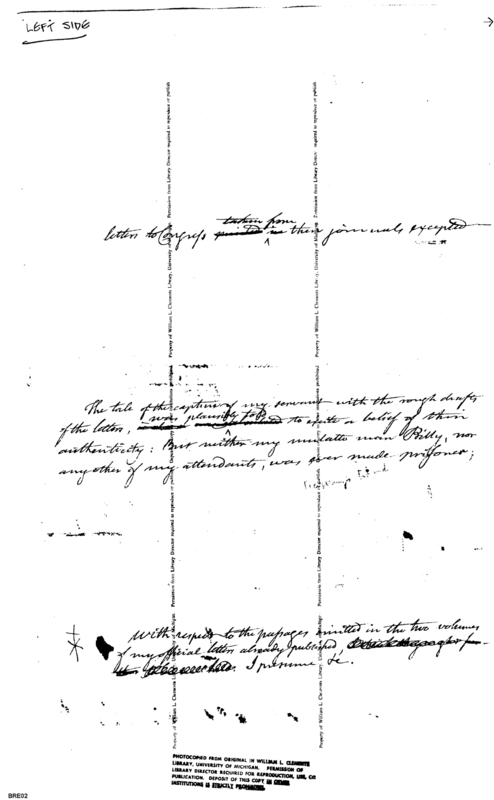 LEFT SIDE
→
taken from
letters to Congress printed in their journals excepted
The tale of the capture of my servant with the rough drafts
was plausibly told
of the letters, to excite a belief of their
authenticity: But neither my mulatto man Billy, nor
any other of my attendants, was ever made prisoner;
With respect to the passages omitted in the two volumes
of my official letters already published,
I presume &c.
Property of William L. Clements Library, University of Michigan. Permission from Library Director required to reproduce or publish
Property of William L. Clements Library, University of Michigan. Permission from Library Director required to reproduce or publish
PHOTOCOPIED FROM ORIGINAL IN WILLIAM L. CLEMENTS
LIBRARY, UNIVERSITY OF MICHIGAN. PERMISSION OF
LIBRARY DIRECTOR REQUIRED FOR REPRODUCTION, USE, OR
PUBLICATION. DEPOSIT OF THIS COPY IN OTHER
INSTITUTIONS IS STRICTLY PROHIBITED.
BRE02